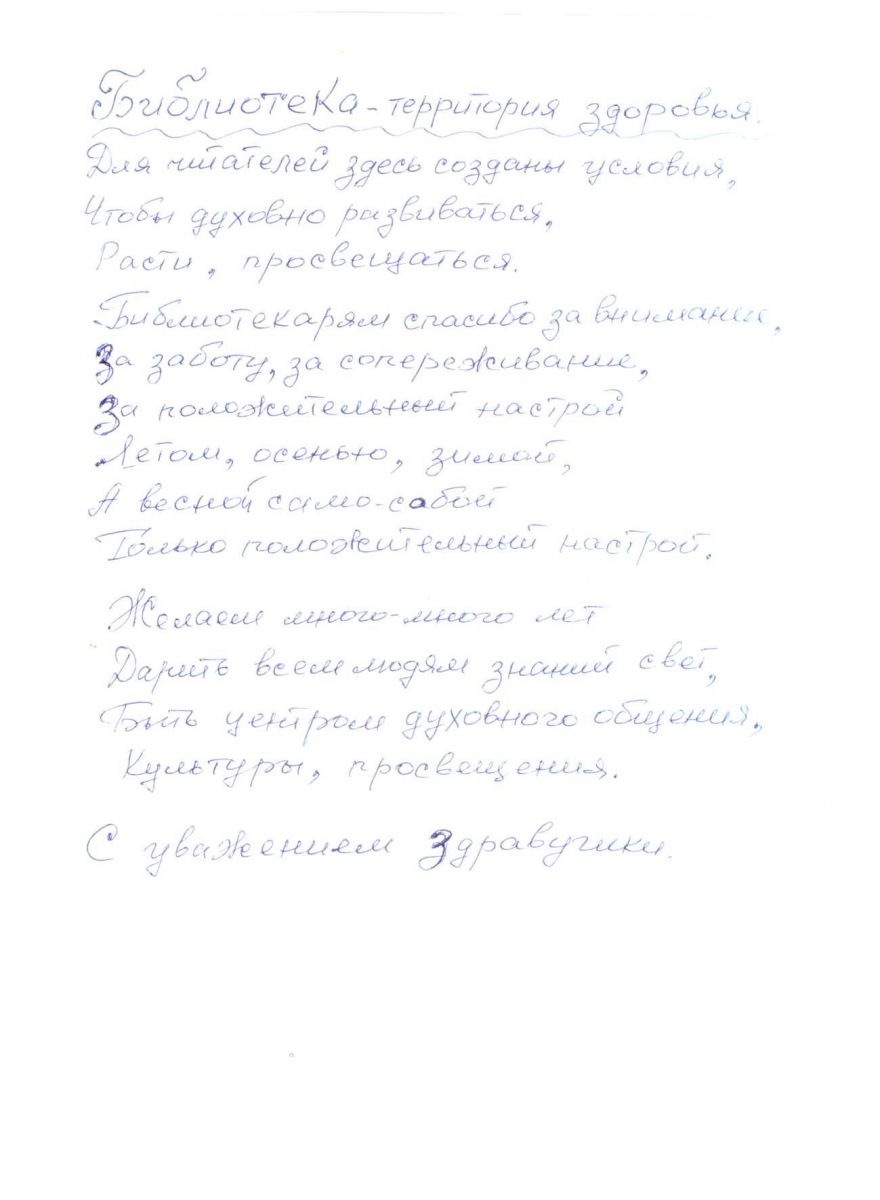 Библиотека - территория здоровья.
Для читателей здесь созданы условия,
Чтобы духовно развиваться,
Расти, просвещаться.
Библиотекарям спасибо за внимание,
За заботу, за сопереживание,
За положительный настрой
Летом, осенью, зимой,
А весной само-собой
Только положительный настрой.
Желаем много-много лет
Дарить всем людям знаний свет,
Быть центром духовного общения,
Культуры, просвещения.
С уважением Здравучики.